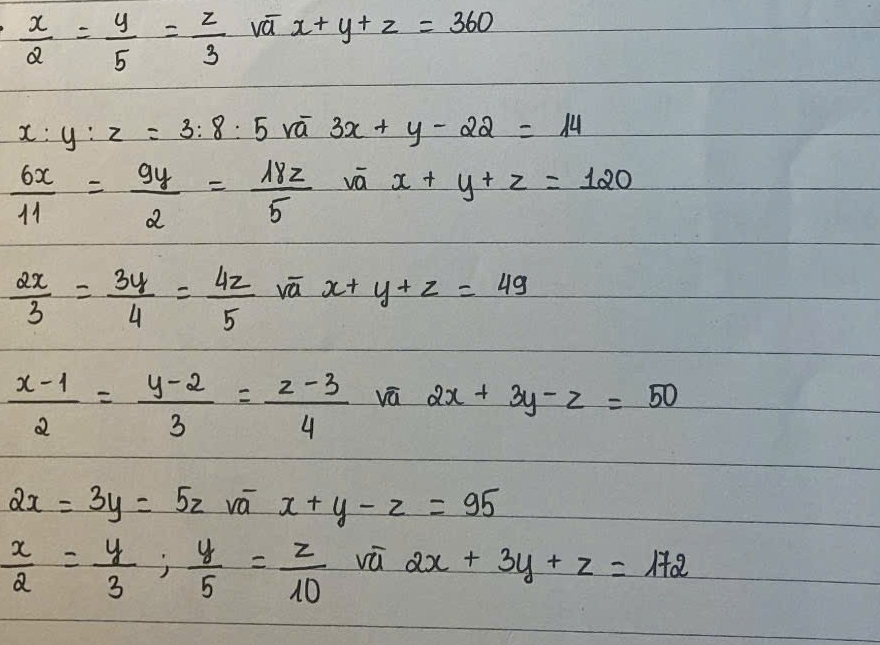 x/2 = y/5 = z/3 và x + y + z = 360
x : y : z = 3 : 8 : 5 và 3x + y - 2z = 14
6x/11 = 9y/2 = 18z/5 và x + y + z = 120
2x/3 = 3y/4 = 4z/5 và x + y + z = 49
x-1/2 = y-2/3 = z-3/4 và 2x + 3y - z = 50
2x = 3y = 5z và x + y - z = 95
x/2 = y/3 ; y/5 = z/10 và 2x + 3y + z = 172